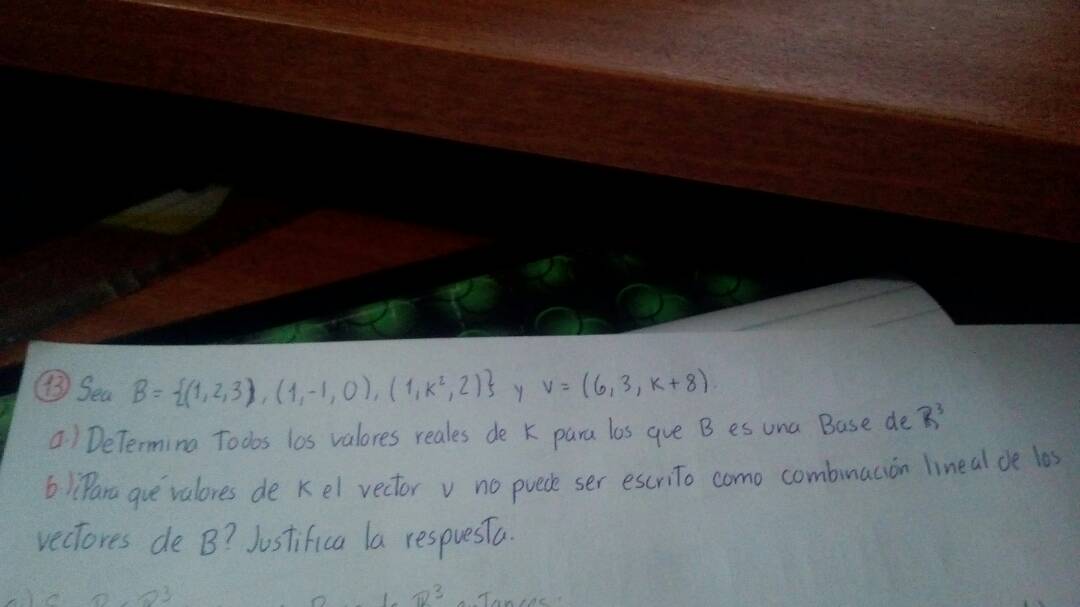 13 Sea B = {(1,2,3), (1,-1,0), (1,K²,2)} y v = (6,3,K+8).
a.) Determina Todos los valores reales de K para los que B es una Base de ℝ³
b.) ¿Para qué valores de K el vector v no puede ser escrito como combinación lineal de los
vectores de B? Justifica la respuesta.
ℝ³ entonces